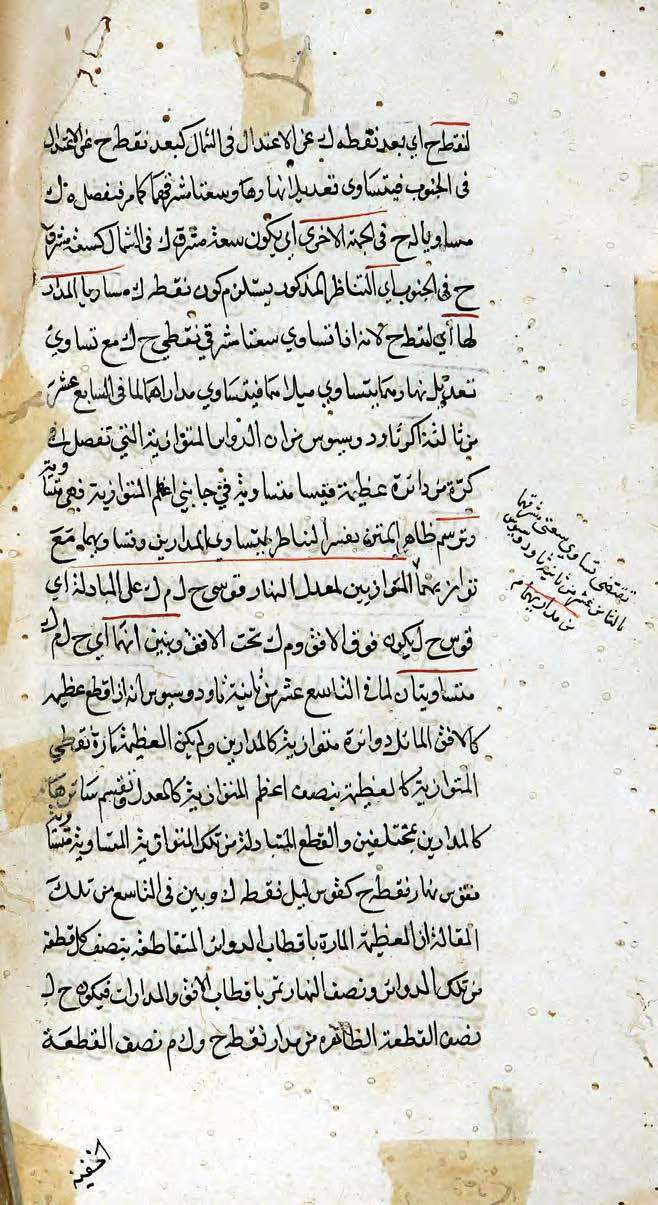 لنقطة ح اي بعد نقطة ك عن الاعتدال فى الشمال كبعد نقطة ح عن الاعتدال
فى الجنوب فيتساوى تعديل نهارهما وسعتا مشرقهما كما مر فنفصل ه ك
مساويا له ح فى الجهة الاخرى اي يكون سعة مشرق ك فى الشمال كسعة مشرق
ح فى الجنوب اي التناظر المذكور يستلزم كون نقطة ك مساويا المدار
لها اي لنقطة ح لانه اذا تساوي سعتا مشرقي نقطتي ح ك مع تساوي
تعديل نهارهما يتساوي ميلاهما فيتساوي مداراهما لما فى السابع عشر
من ثالثة اكر ثاودوسيوس من ان الدوائر المتوازية التي تفصل
كرة من دائرة عظيمة قسيا متساوية في جانبي اعظم المتوازية فهي متساوية
وترسم ظاهر المتن يفسر التناظر بتساوي المدارين وتساويهما مع
توازيهما المتوازيين لمعدل النهار قوسي ح ل م ك على المبادلة اي
قوس ح ل يكون فوق الافق وم ك تحت الافق وبنين انهما اي ح ل م ك
متساويتان لما فى التاسع عشر من ثانية ثاودوسيوس انه اذا قطع عظيمة
كالافق المائل دوائر متوازية كالمدارين ولم يكن العظيمة مارة بقطبي
المتوازية كالعظيمة ينصف اعظم المتوازية كالمعدل ونقسم سائرها
كالمدارين بمختلفين والقطع المتبادلة من تلك المتوازية المتساوية متساوية
فقوس نهار نقطة ح كقوس ليل نقطة ك وبين فى التاسع من تلك
المقالة ان العظيمة المارة باقطاب الدوائر المتقاطعة ينصف كل قطعة
من تلك الدوائر ونصف النهار تمر باقطاب الافق والمدارات فيكون ح ل
نصف القطعة الظاهرة من مدار نقطة ح وك م نصف القطعة
الخفية
تقتضى تساوي سعتي مشرقهما
بالثامن عشر من ثانية ثاودوسيوس
من مداريهما م